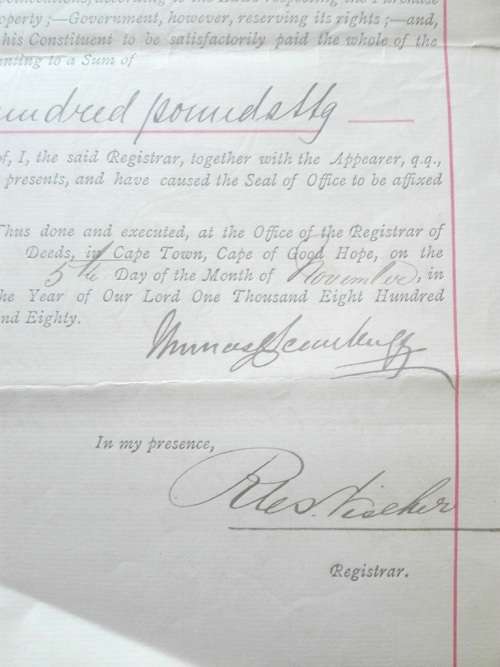 according to the Laws respecting the Purchase
operty ;—Government, however, reserving its rights ;—and,
his Constituent to be satisfactorily paid the whole of the
unting to a Sum of
undred pounds stg
of, I, the said Registrar, together with the Appearer, q.q.,
presents, and have caused the Seal of Office to be affixed
Thus done and executed, at the Office of the Registrar of
Deeds, in Cape Town, Cape of Good Hope, on the
5th Day of the Month of November, in
he Year of Our Lord One Thousand Eight Hundred
nd Eighty.
In my presence,
Registrar.